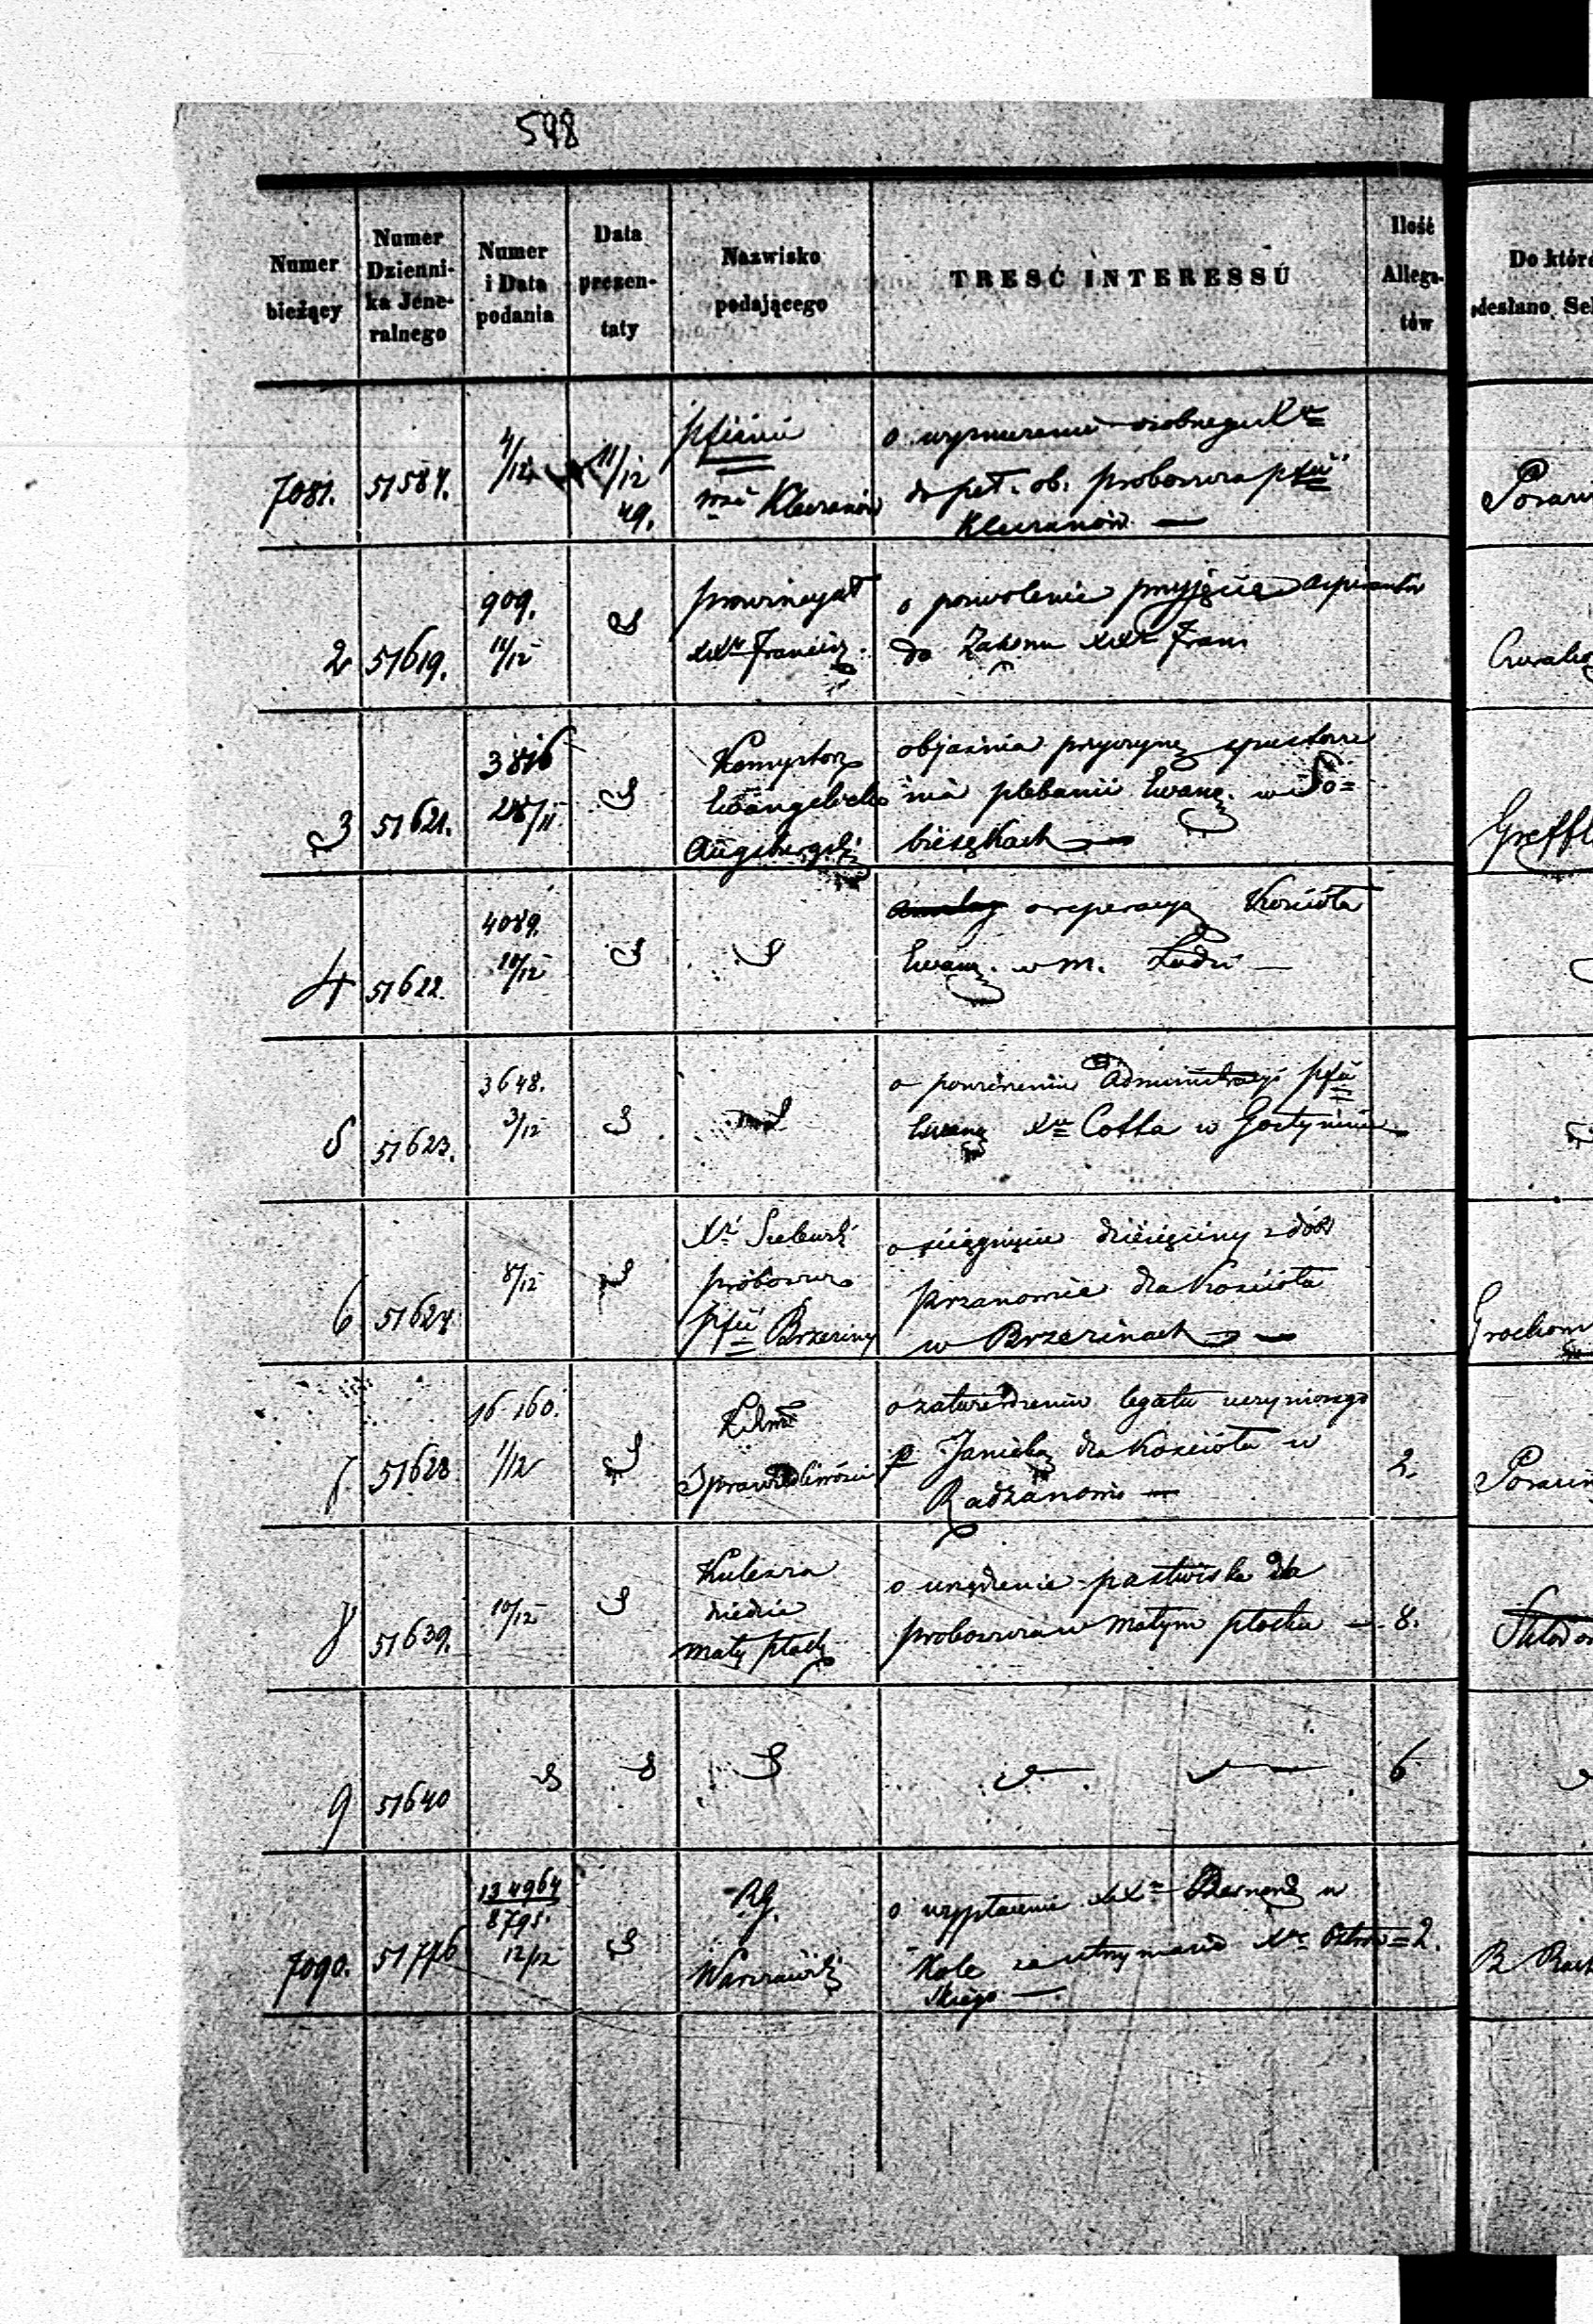 598
Numer bieżący
Numer Dzienni- ka Jene- ralnego
Numer i Data podania
Data prezen- taty
Nazwisko podającego
TRESĆ INTERESSU
Ilość Allega- tów
Do któr
desłano Se
7081. 51584. 4/12 11/12 49.
pfianie
Kleczanów
o wyznaczenie osobnego Xa
do peł. ob. proboszcza pfii
Kleczanów —
2 51619. 909. 11/12
prowincyał
XXw Francisz.
o pozwolenie przyjęcia aspirantów
do Zakonu XXw Fran
3 51621. 3816 28/11
Konsystorz
Ewangelicko
Augsburgski
objaśnia przyczynę spustosze
nia plebanii Ewang. w So=
biesękach —
Greff
4 51622. 4089. 10/12
o reperacyą Kościoła
Ewang. w m. Łodzi —
5 51623. 3648. 3/12
o powierzeniu Administracyi pfii
Ewang Xu Cotta w Gostyninie
6 51624 8/12
proboszcz
pfii Brzeziny
o ściągnięcie dziesięciny z dóbr
dla Kościoła
w Brzezinach —
Grochow
7 51628 16160. 1/12
Sprawiedliwości
o zatwierdzeniu legatu uczynionego
p Janickę dla Kościoła w
Radzanowie —
2.
8 51639. 10/12
Kulesza
dziedzic
mały płock
o urządzenie pastwiska dla
proboszcza w Małym płocku — 8.
9 51640
6
7090. 51776 134964
8795.
12/12
RG.
Warszawski
o wypłacenie XXm Bernard w
Kole za utrzymanie Xa Ostrow= 2.
skiego —